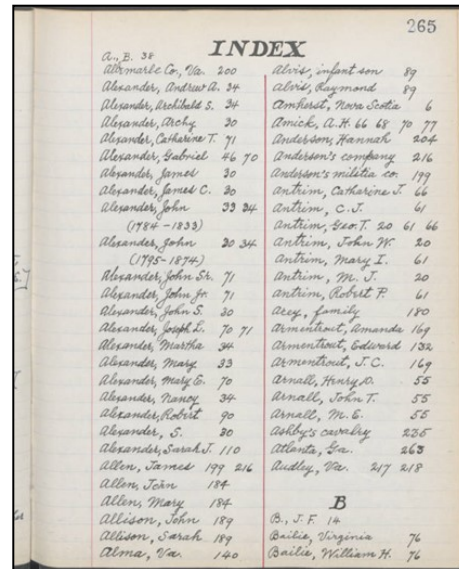 265
INDEX
A., B. 38
Albemarle Co., Va. 200
Alexander, Andrew A. 34
Alexander, Archibald S. 34
Alexander, Archy 30
Alexander, Catharine T. 71
Alexander, Gabriel 46 70
Alexander, James 30
Alexander, James C. 30
Alexander, John 33 34
(1784-1833)
Alexander, John 30 34
(1795-1874)
Alexander, John Sr. 71
Alexander, John Jr. 71
Alexander, John S. 30
Alexander, Joseph L. 70 71
Alexander, Martha 34
Alexander, Mary 33
Alexander, Mary E. 70
Alexander, Nancy 34
Alexander, Robert 90
Alexander, S. 30
Alexander, Sarah J. 110
Allen, James 199 216
Allen, John 184
Allen, Mary 184
Allison, John 189
Allison, Sarah 189
Alma, Va. 140
Alvis, infant son 89
Alvis, Raymond 89
Amherst, Nova Scotia 6
Amick, A.H. 66 68 70 77
Anderson, Hannah 204
Anderson's company 216
Anderson's militia co. 199
Antrim, Catharine J. 66
Antrim, C.J. 61
Antrim, Geo. T. 20 61 66
Antrim, John W. 20
Antrim, Mary I. 61
Antrim, M. J. 20
Antrim, Robert P. 61
Arey, family 180
Armentrout, Amanda 169
Armentrout, Edward 132
Armentrout, J.C. 169
Arnall, Henry D. 55
Arnall, John T. 55
Arnall, M. E. 55
Ashby's cavalry 235
Atlanta, Ga. 263
Audley, Va. 217 218
B
B., J. F. 14
Bailie, Virginia 76
Bailie, William H. 76